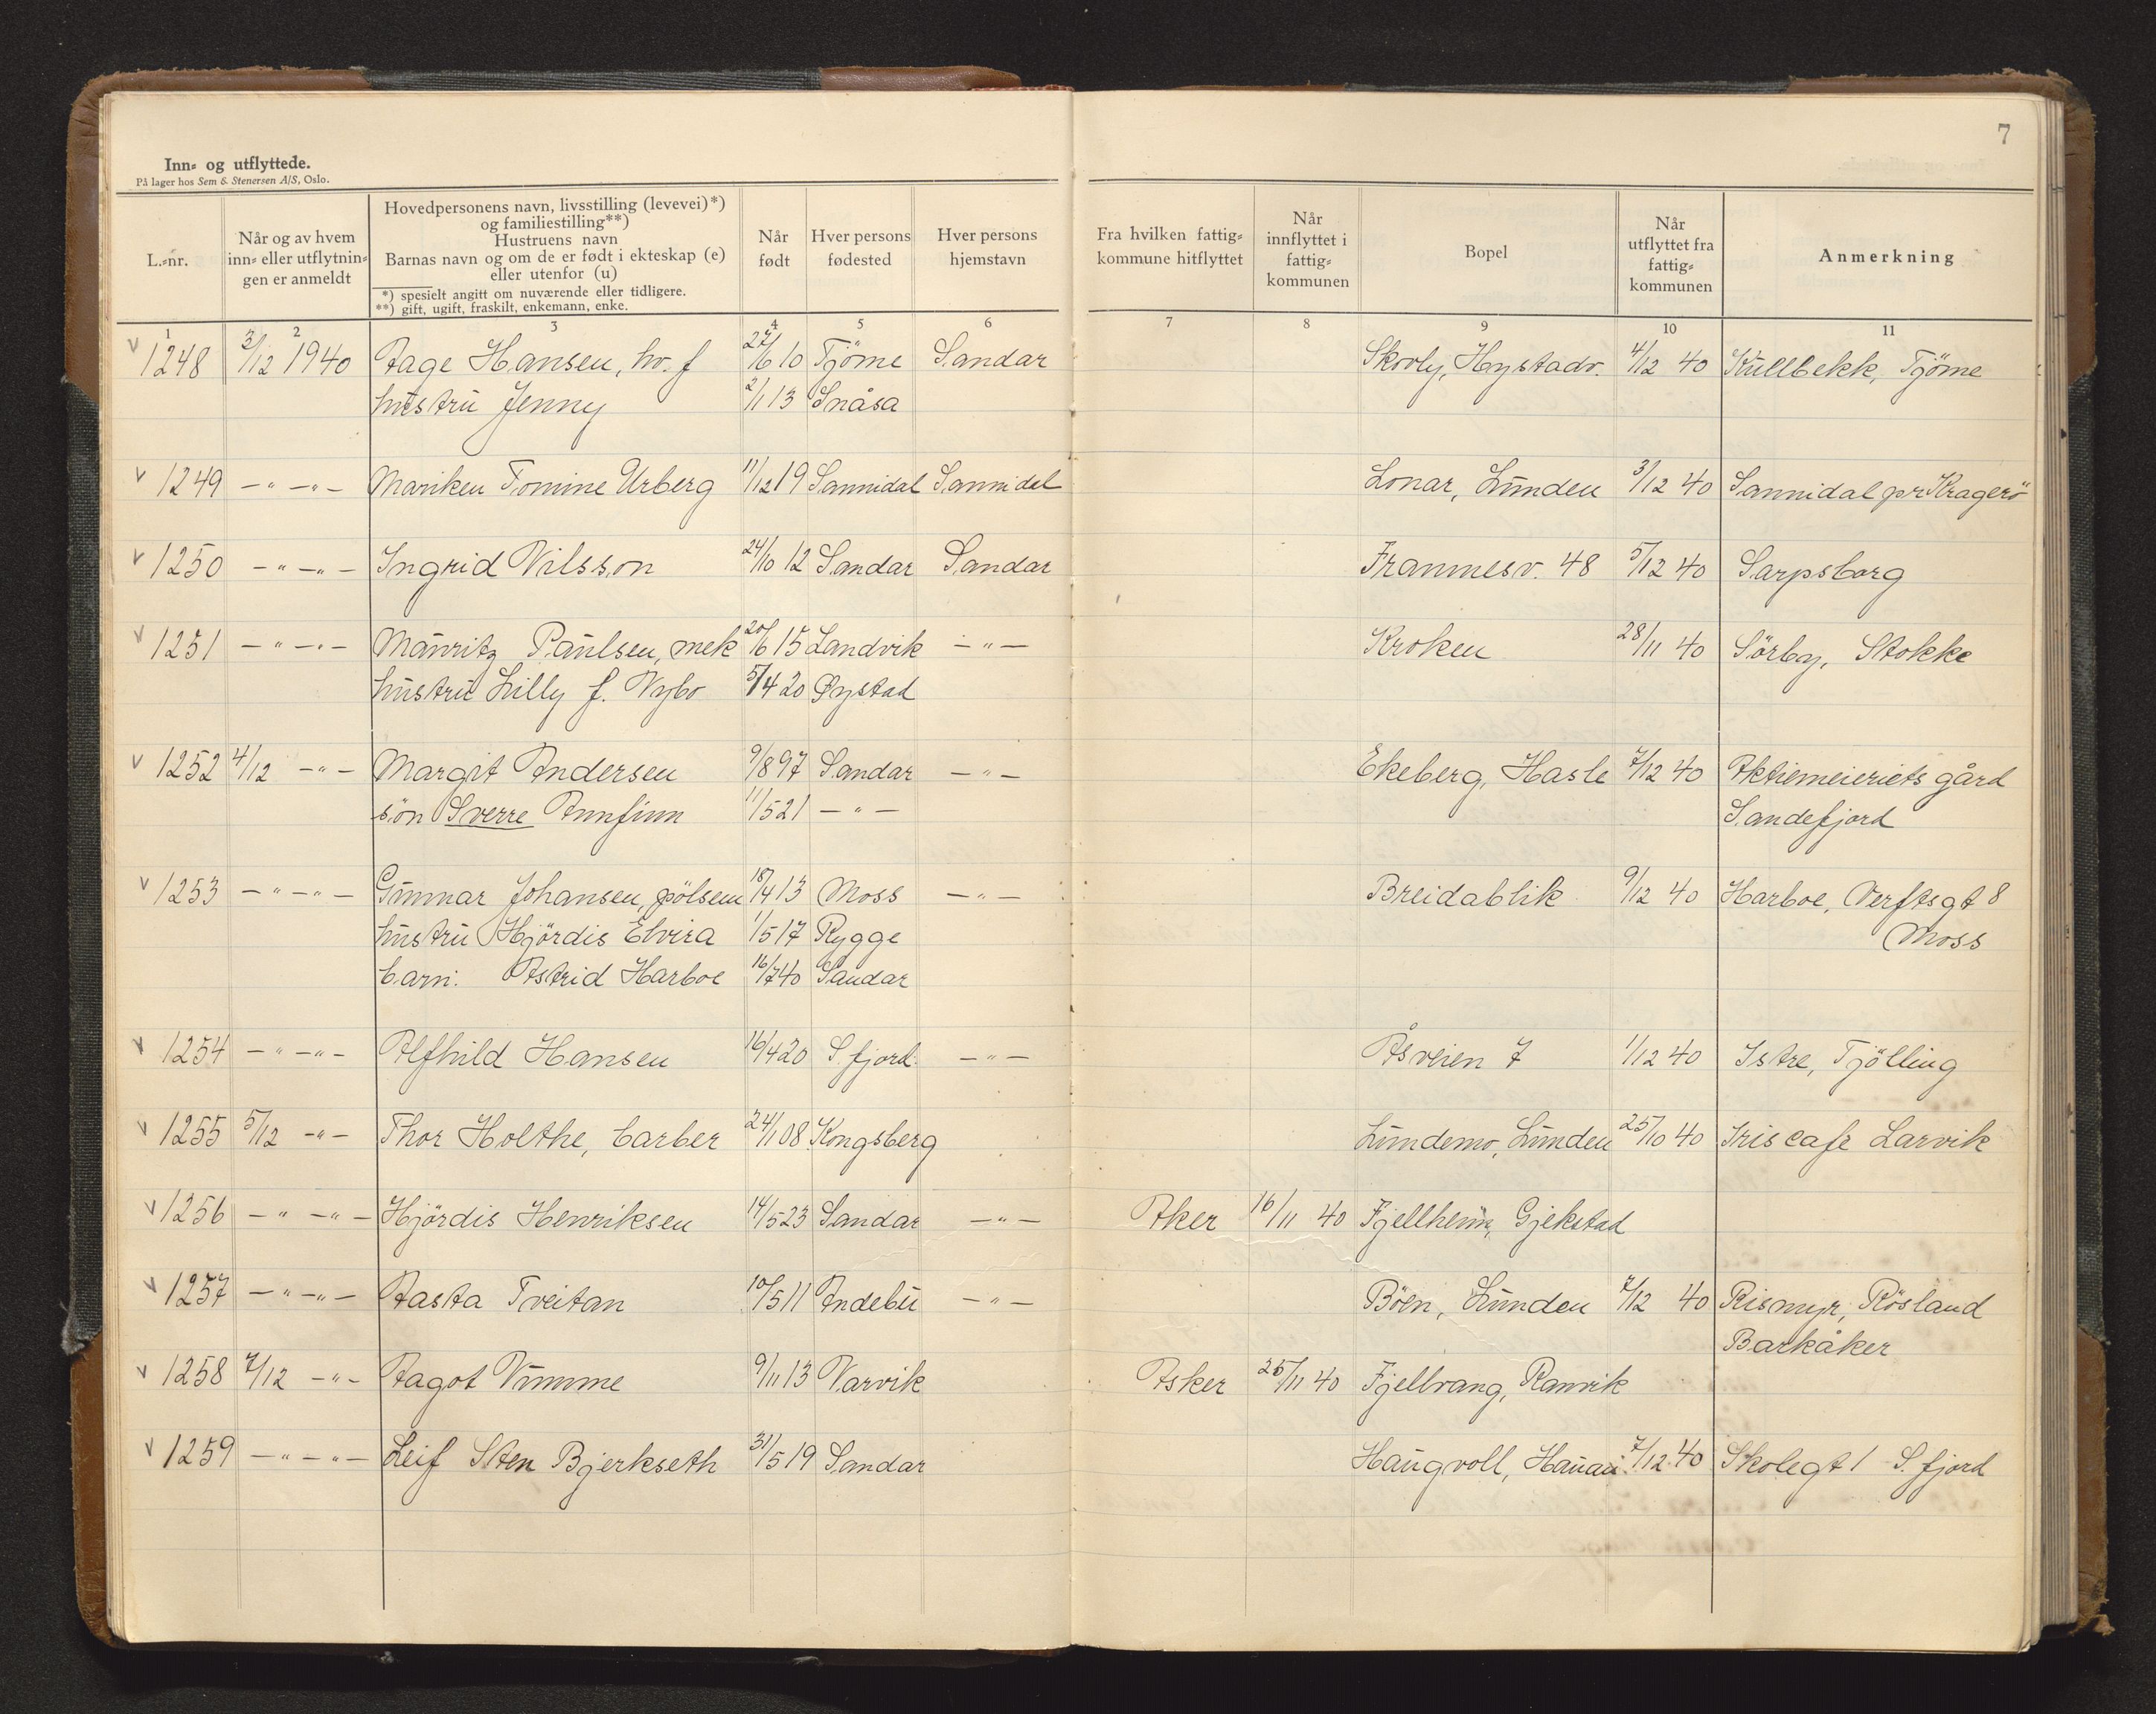 7
Inn- og utflyttede.
På lager hos Sem & Stenersen A/S, Oslo.
L.-nr.
Når og av hvem inn- eller utflytnin- gen er anmeldt
Hovedpersonens navn, livsstilling (levevei)*) og familiestilling**)
Hustruens navn
Barnas navn og om de er født i ekteskap (e) eller utenfor (u)
*) spesielt angitt om nuværende eller tidligere.
**) gift, ugift, fraskilt, enkemann, enke.
Når født
Hver persons fødested
Hver persons hjemstavn
Fra hvilken fattig- kommune hitflyttet
Når innflyttet i fattig- kommunen
Bopel
Når utflyttet fra fattig- kommunen
Anmerkning
1 2 3 4 5 6 7 8 9 10 11
v 1248 3/12 1940 Aage Hansen, hv. f 27/6 10 Tjöme Sandar Skovly, Hystadv. 4/12 40 Kullbekk, Tjöme
hustru Jenny 2/1 13 Snåsa
v 1249 -"- -"- Mariken Tomine Urberg 11/12 19 Sannidal Sannidal Lonar, Lunden 3/12 40 Sannidal pr Kragerö
v 1250 -"- -"- Ingrid Nilsson 24/10 12 Sandar Sandar Framnesv. 48 5/12 40 Sarpsborg
v 1251 -"- -"- Mauritz Paulsen, mek 20/6 15 Landvik -"- Kroken 28/11 40 Sörby, Stokke
hustru Lilly f. Nybo 5/4 20 Øystad
v 1252 4/12 -"- Margit Andersen 9/8 97 Sandar -"- Ekeberg, Hasle 7/12 40 Aktiemeieriets gård
sön Sverre Arnfinn 11/5 21 -"- Sandefjord
v 1253 -"- -"- Gunnar Johansen, pölsem 18/4 13 Moss -"- Breidablik 9/12 40 Harboe, Verftsgt 8
hustru Hjördis Elvira 1/5 17 Rygge Moss
barn: Astrid Harboe 16/7 40 Sandar
v 1254 -"- -"- Alfhild Hansen 16/4 20 S.fjord. -"- Åsveien 7 1/12 40 Istre, Tjölling
v 1255 5/12 -"- Thor Holthe, barber 24/1 08 Kongsberg Lundemo, Lunden 25/10 40 Iris cafe Larvik
v 1256 -"- -"- Hjördis Henriksen 14/5 23 Sandar -"- Aker 16/11 40 Fjellheim, Gjekstad
v 1257 -"- -"- Aasta Tveitan 10/5 11 Andebu -"- Böen, Lunden 7/12 40 Rismyr, Rösland
Barkåker
v 1258 7/12 -"- Aagot Vimme 9/11 13 Narvik Asker 25/11 40 Fjellvang, Ranvik
v 1259 -"- -"- Leif Sten Bjerkseth 31/5 19 Sandar Haugvoll, Hauan 7/12 40 Skolegt 1 S.fjord